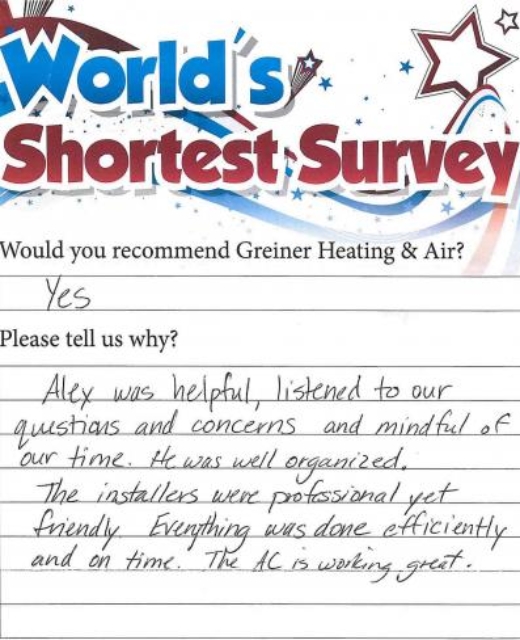 World's
Shortest Survey
Would you recommend Greiner Heating & Air?
Yes
Please tell us why?
Alex was helpful, listened to our
questions and concerns and mindful of
our time. He was well organized.
The installers were professional yet
friendly. Everything was done efficiently
and on time. The AC is working great.